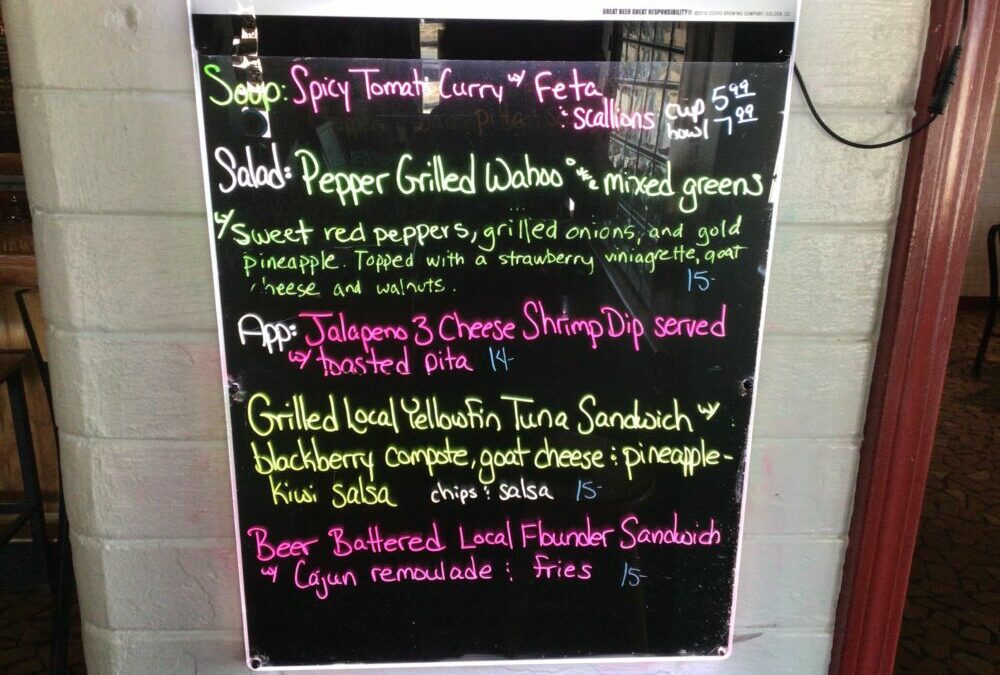 GREAT BEER GREAT RESPONSIBILITY®
Soup: Spicy Tomato Curry w/ Feta
& scallions cup 5.99
bowl 7.99
Salad: Pepper Grilled Wahoo mixed greens
w/ sweet red peppers, grilled onions, and gold
pineapple. Topped with a strawberry viniagrette, goat
cheese and walnuts. 15-
App: Jalapeno 3 Cheese Shrimp Dip served
w/ toasted pita 14-
Grilled Local Yellowfin Tuna Sandwich w/
blackberry compote, goat cheese & pineapple-
kiwi salsa chips & salsa 15-
Beer Battered Local Flounder Sandwich
w/ Cajun remoulade & fries 15-